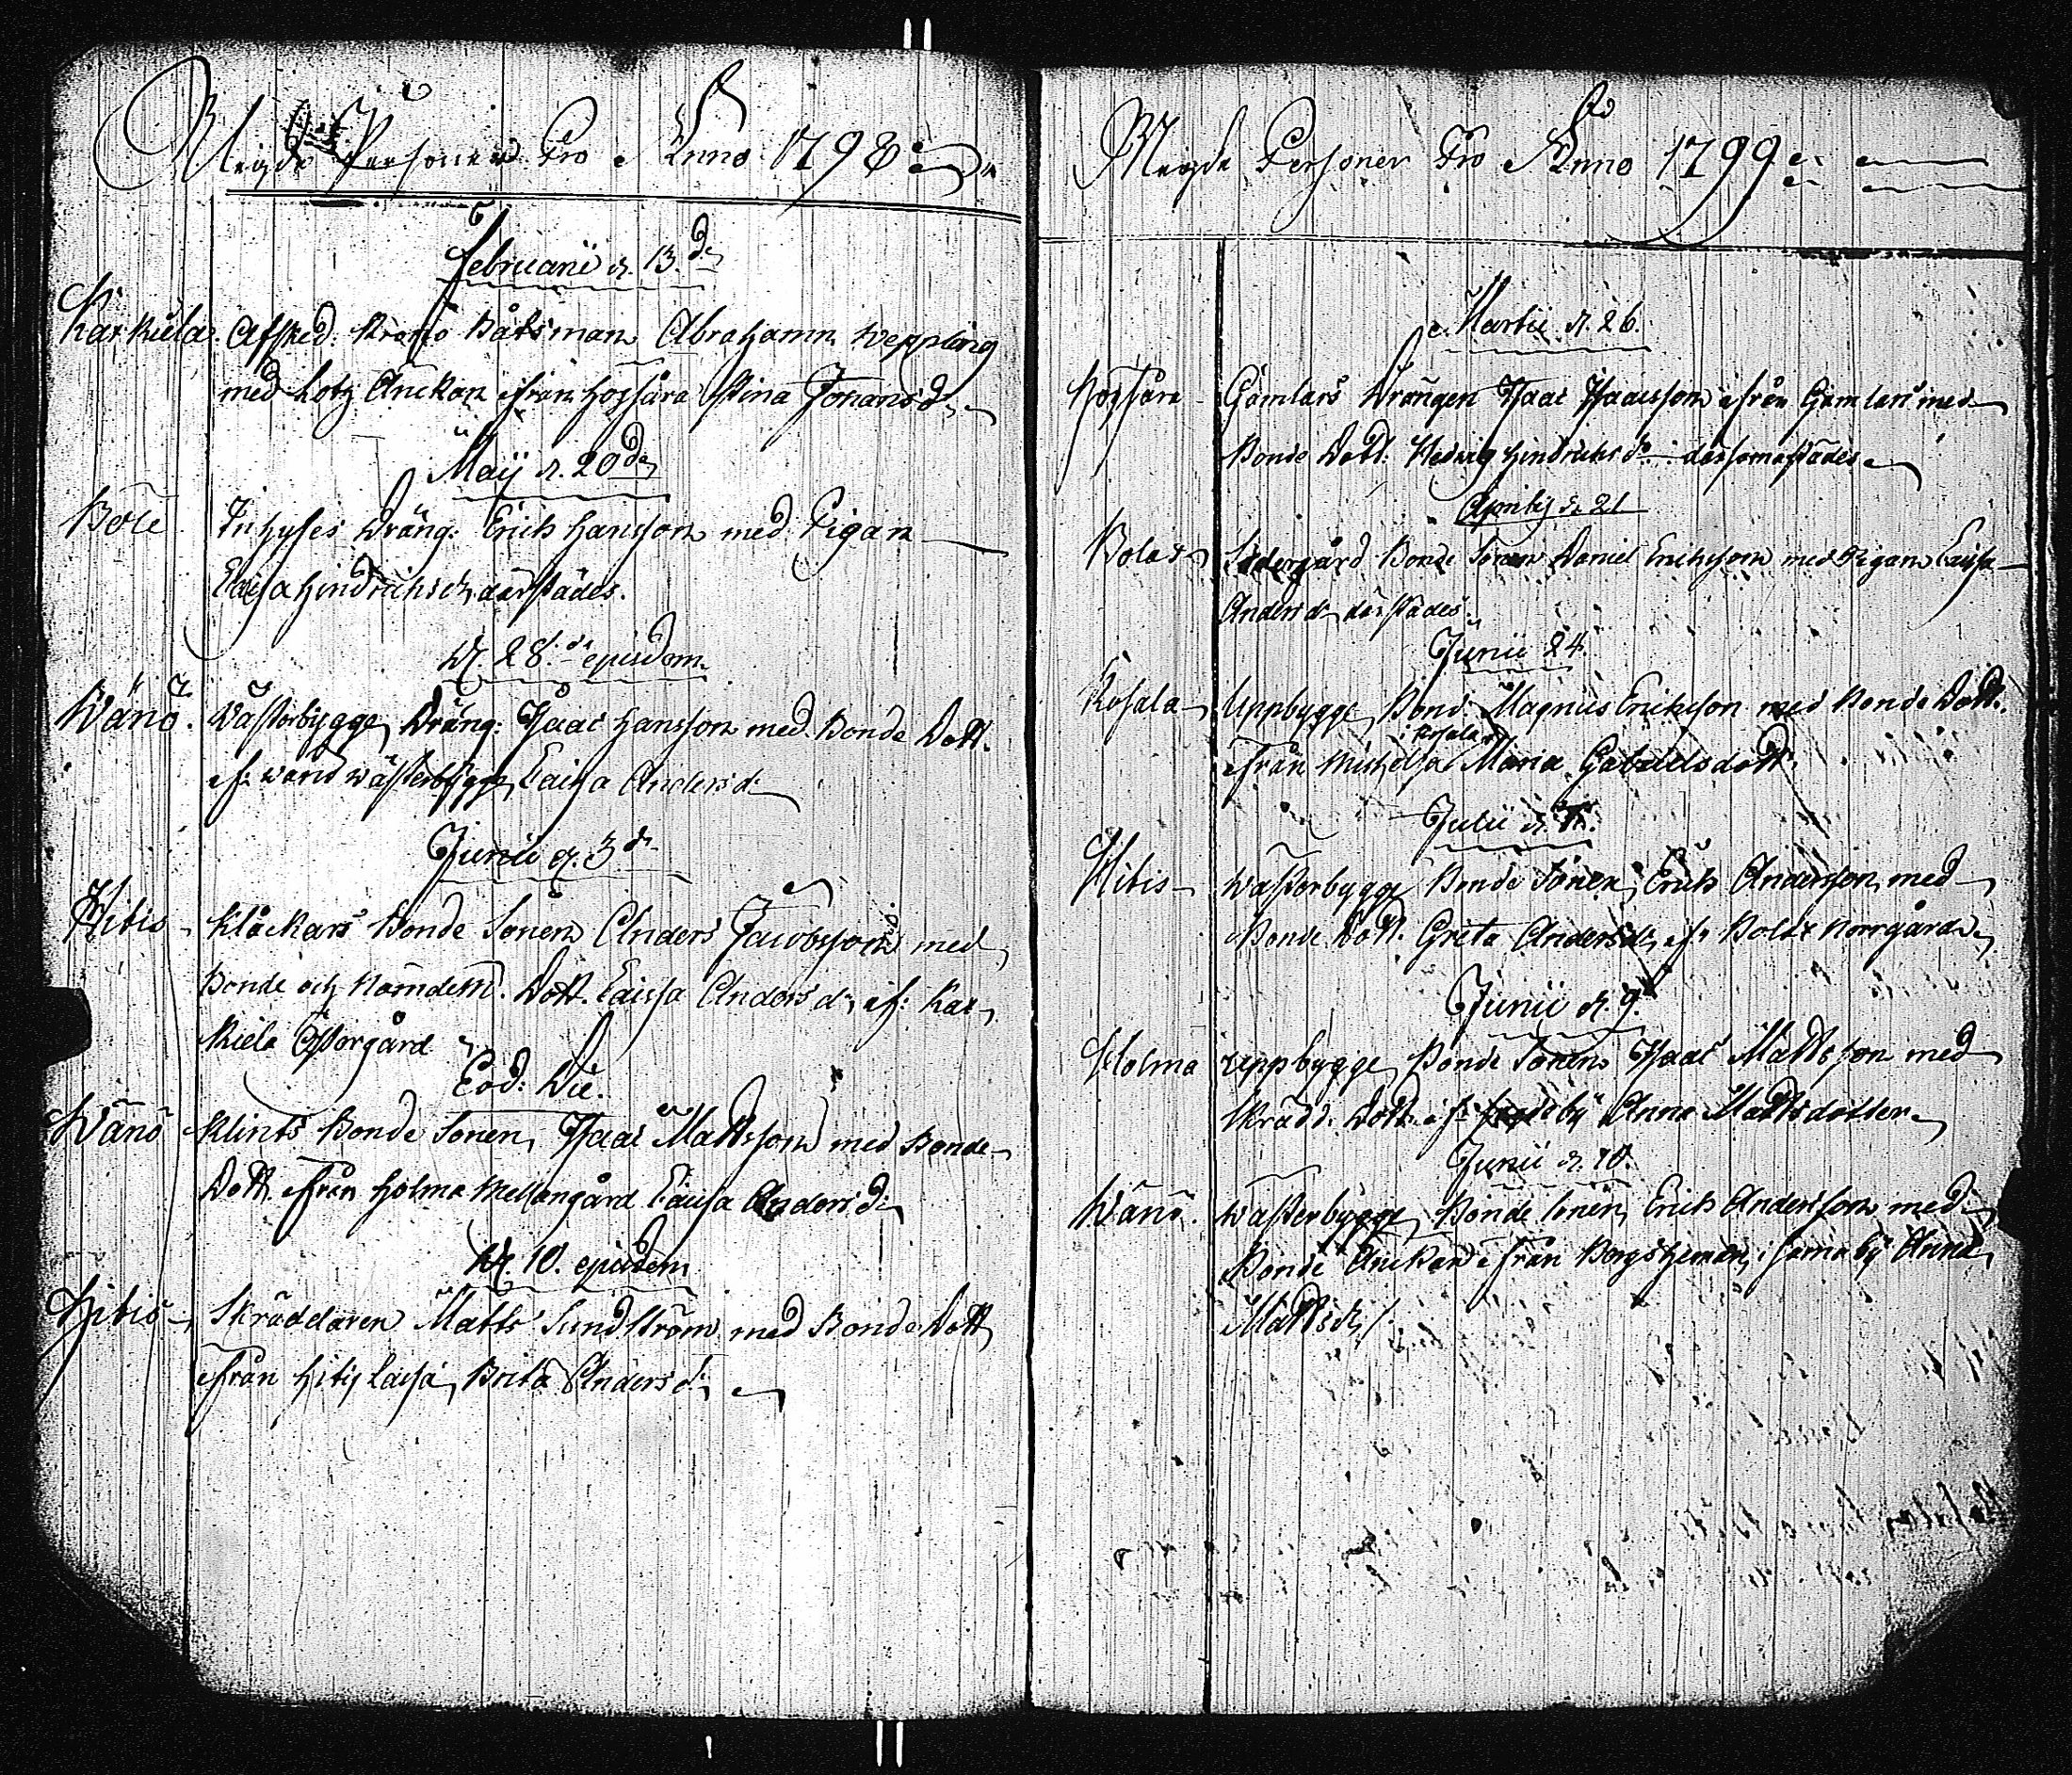 Wigde Personer Pro Anno 1798
Februarii d. 13de
Karkiela. Afsked. Krono Båtsman Abrahamn Weppling
med Lotz Änckan ifrån Högsåra Stina Johansd:
Maij d. 20de
Böle Inhyses Dräng. Erich Hansson med Pigan
Caisa Hindrichsd: därstädes.
D. 28de ejusdem.
Wänö. Wästerbygge Dräng: Isaac Hansson med Bonde Dott.
if: Wänö Wästerbygge Caisa Andersd:
Junii d. 3de
Hitis Klåckars Bonde Sonen Anders Jacobsson med
Bonde och Nämdem. Dott. Caisa Andersd: if: Kar-
kiela Östorgård
Eod: Die.
Wänö Klints Bonde Sonen Isaac Mattsson med Bonde
Dott. ifrån Holma Mellangård Caisa Andersd:
D. 10. ejusdem
Hitis Skräddaren Matts Sundström med Bonde Dott
ifrån Hitis Brita Andersd:
Wigde Personer Pro Anno 1799
Martii d. 26.
Högsåra Gamlars Drängen Isaac Isaacsson ifrån Gamlars med
Bonde Dott. Hedvig Hindrichsd: därsomastädes
Aprilis d. 21
Bolax Södergård Bonde Sonen Daniel Ericksson med Pigan Caisa
Andersd: därstädes.
Junii 24.
Rosala Uppbygge Bond. Magnus Ericksson med Bonde Dott.
Rosala
ifrån Michelsa Maria Gabrielsdott.
Julii d.
Hitis Wästerbygge Bonde Sonen Erick Andersson med
Bonde Dott. Greta Andersd: if: Bolax Norrgård
Junii d. 9.
Holma Uppbygge Bonde Sonen Isaac Mattsson med
Skrädd. Dott. if: by Anna Mattsdotter
Junii d. 10.
Wänö. Wästerbygge Bonde Sonen Erick Andersson med
Bonde Änckan ifrån Borgs Heman i sama by Anna
Mattsd: